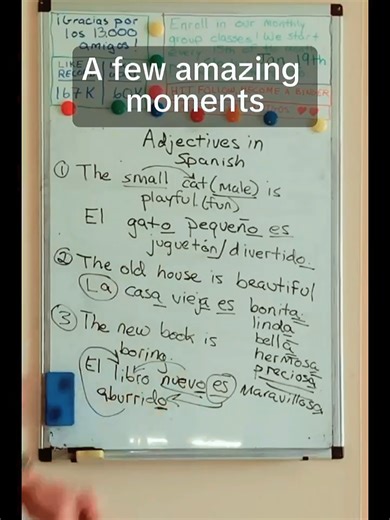 ¡Gracias por
los 13,000
amigos!
Enroll in our monthly
group classes! We start
19th
LIKE
167K 60K
A few amazing
moments
Adjectives in
Spanish
① The small cat (male) is
playful (fun)
El gato pequeño es
juguetón/divertido.
② The old house is beautiful
La casa vieja es bonita.
linda
bella
hermosa
preciosa
Maravillosa
③ The new book is
boring.
El libro nuevo es
aburrido